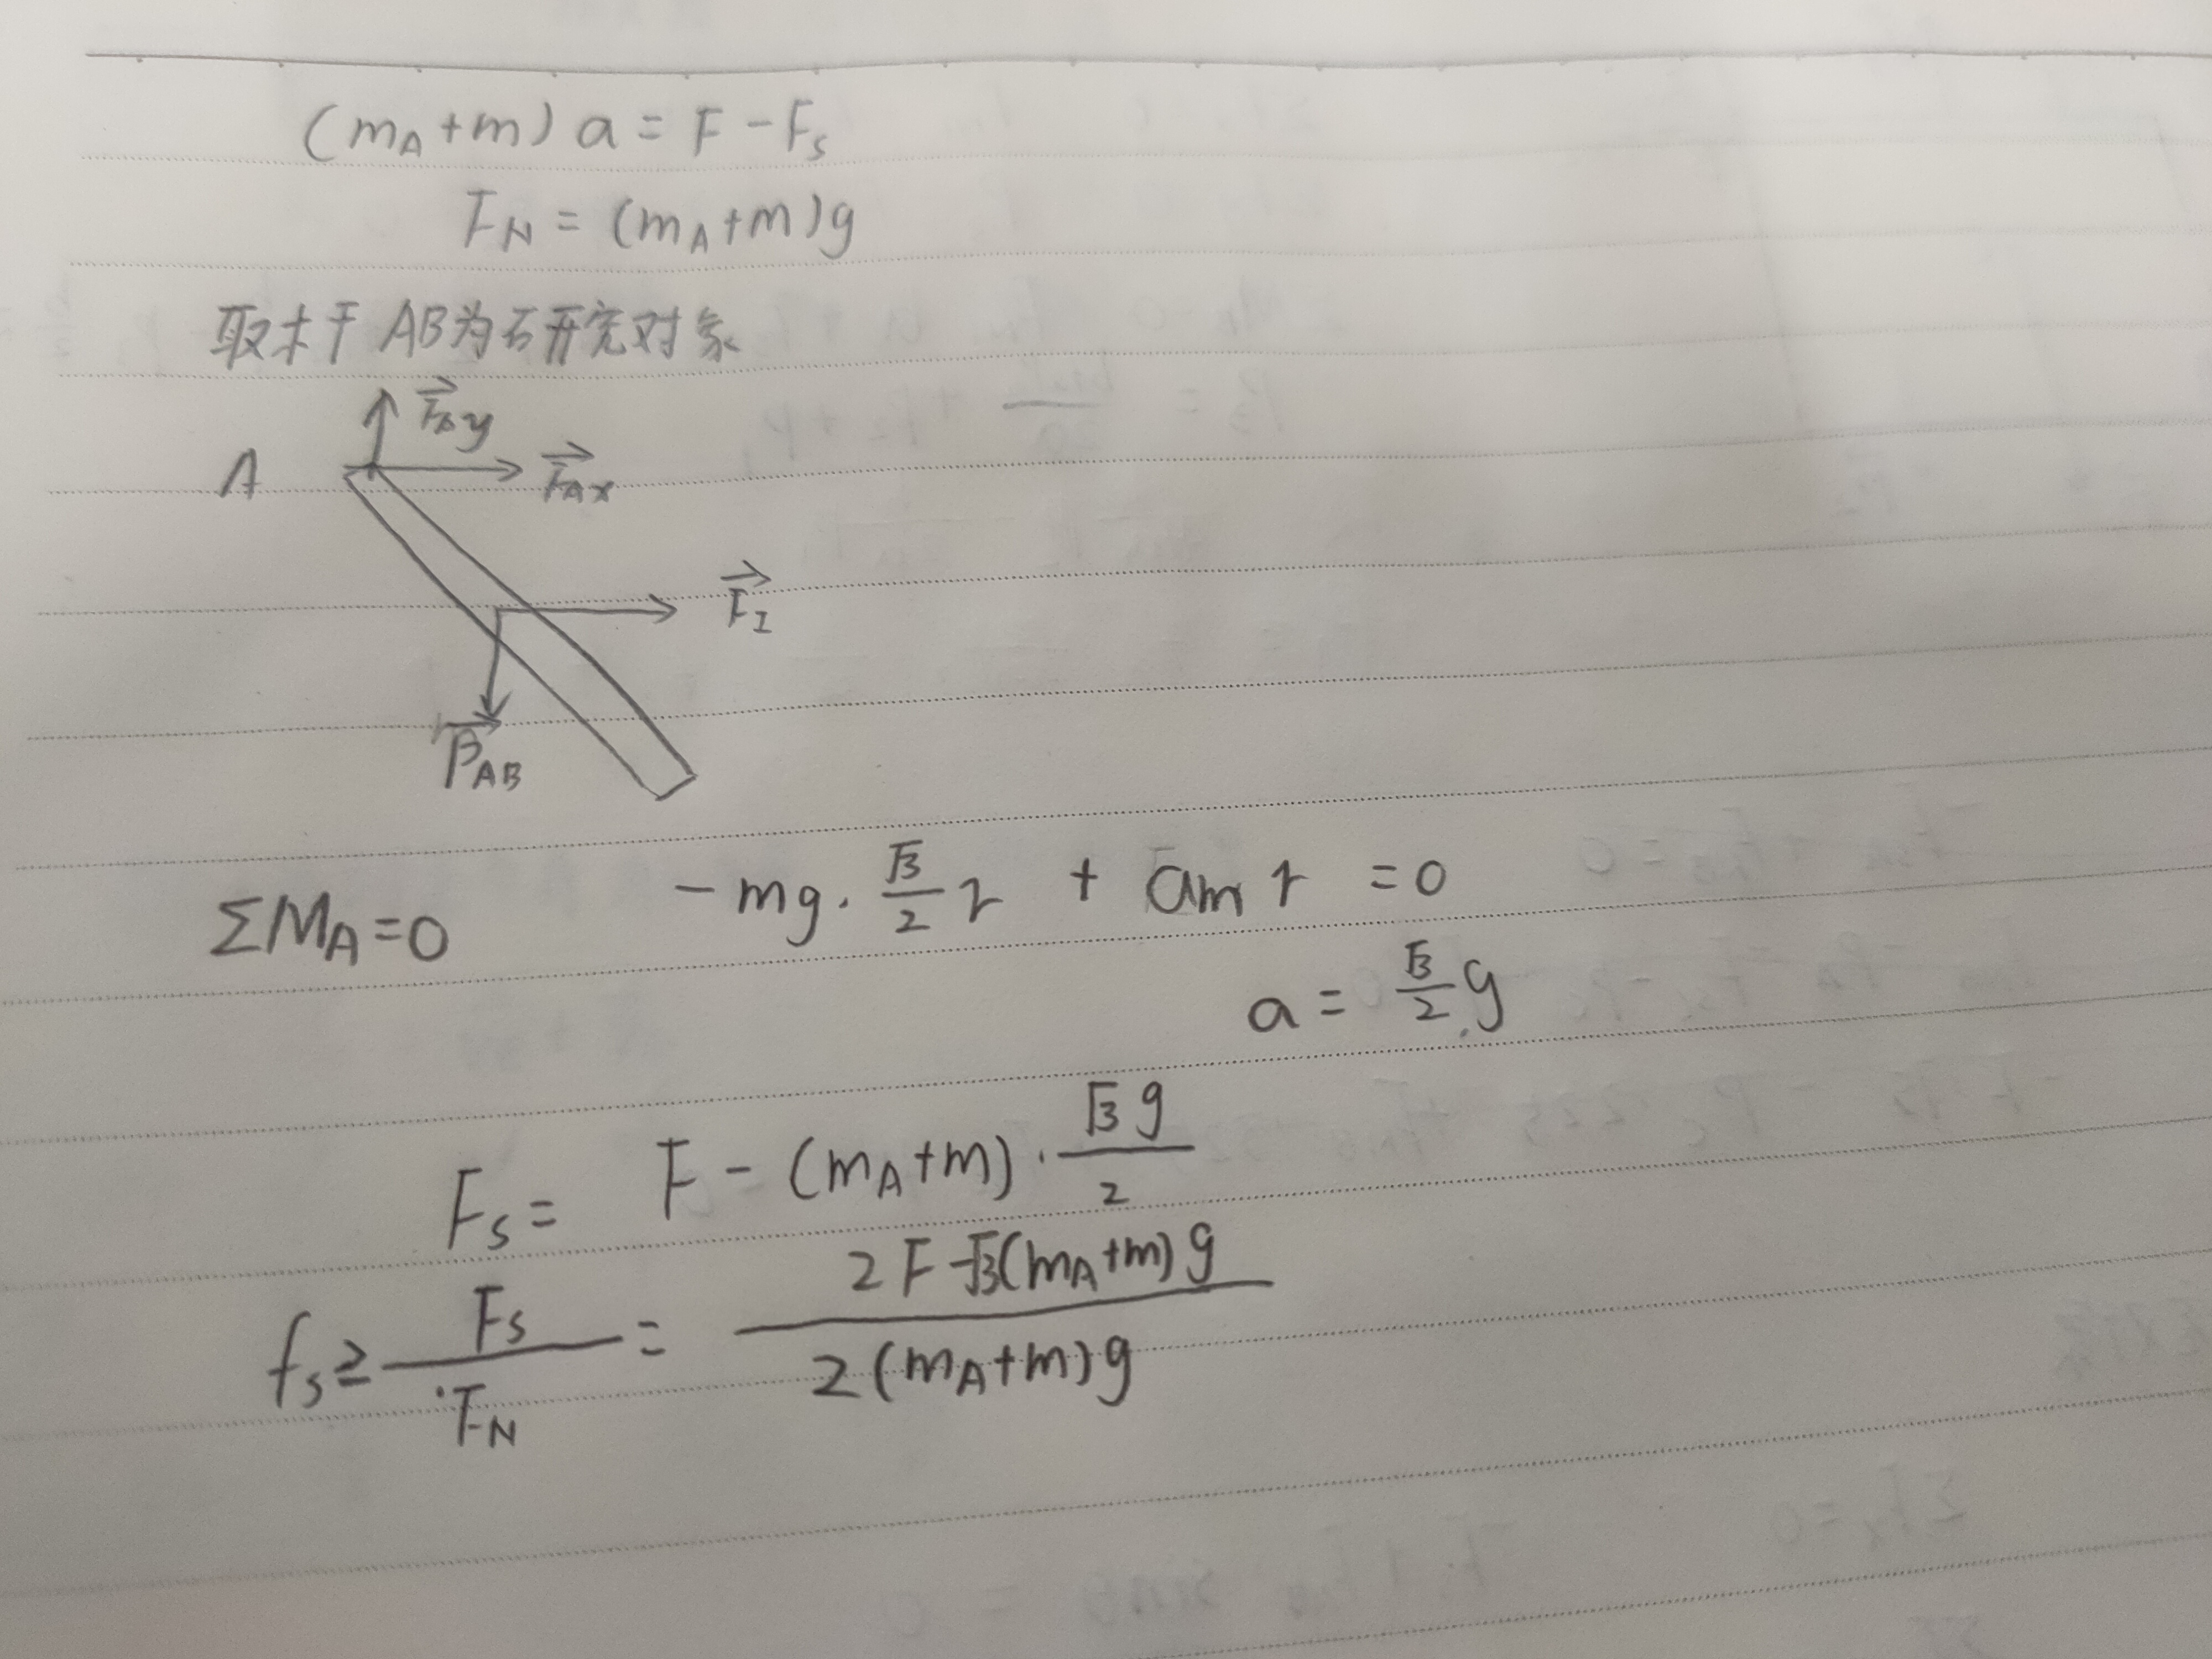 (mA+m) a = F - Fs
FN = (mA+m)g
取杆 AB为研究对象
FAy
A FAx
FI
PAB
ΣMA=0 -mg·√3/2 r + am r = 0
a = √3/2 g
Fs = F - (mA+m)·√3g/2
fs ≥ Fs/FN = 2F-√3(mA+m)g/2(mA+m)g